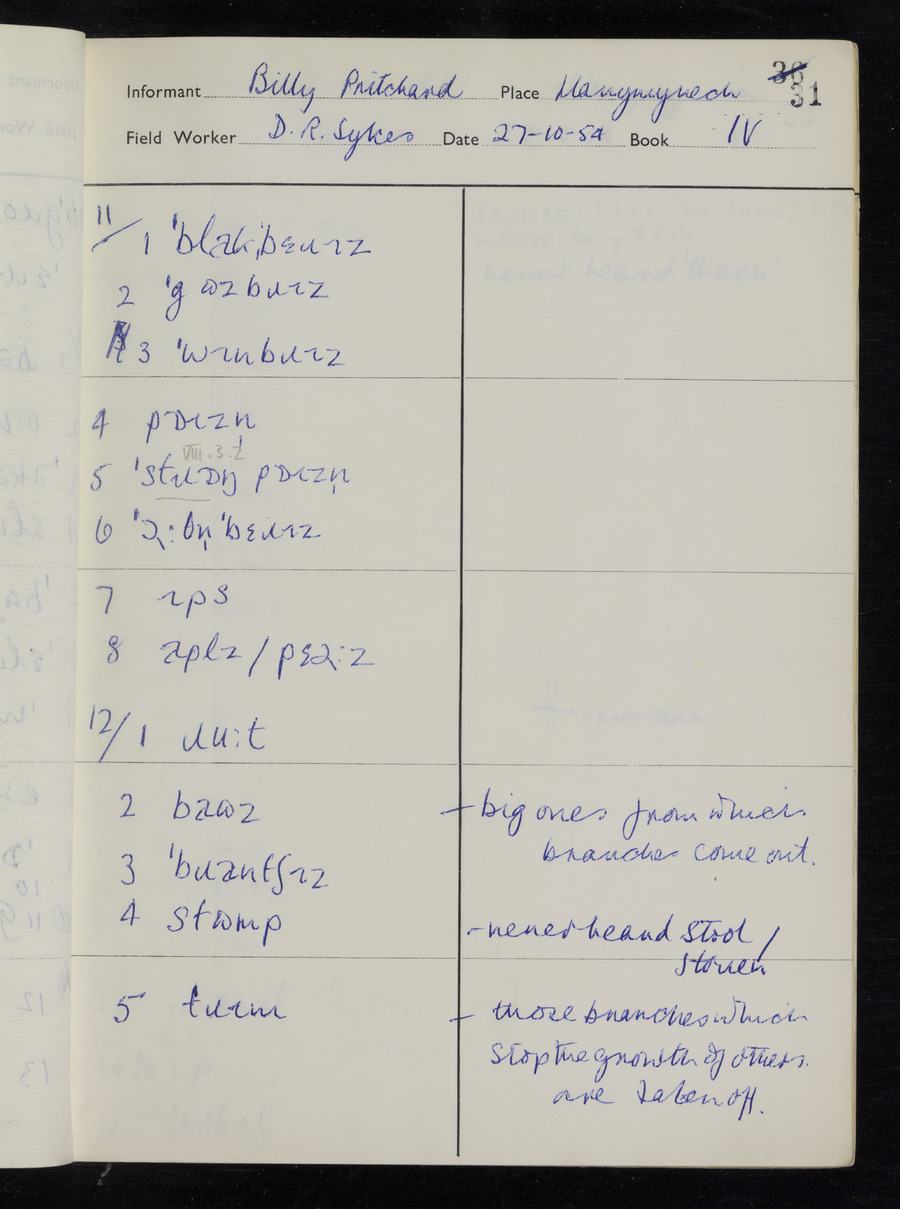 36
Informant Billy Pritchard Place Llanymynech 31
Field Worker D. R. Sykes Date 27-10-54 Book IV
11/1 ˈblakˌbɛɹɪz
2 ˈgɷzbɹɪz
3 ˈwɪnbɹɪz
4 pɒɪzn
VIII.3.2
5 ˈstɹɒŋ pɒɪzn̩
6 ˈbɛɹɪz
7 ɪps
8 aplz /
12/1 ɹu:t
2 baɷz – big ones from which
branches come out.
3 ˈbɹantʃɪz
4 stɷmp – never heard stool /
stoven
5 tɹɪm – those branches which
stop the growth of others.
are taken off.